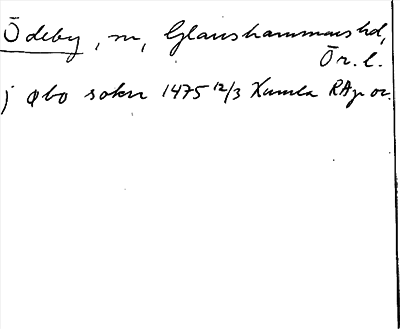 Ödeby, sn, Glanshammars hd,
Ör. l.
j øbo sokn 1475 12/3 Kumla RAp or.